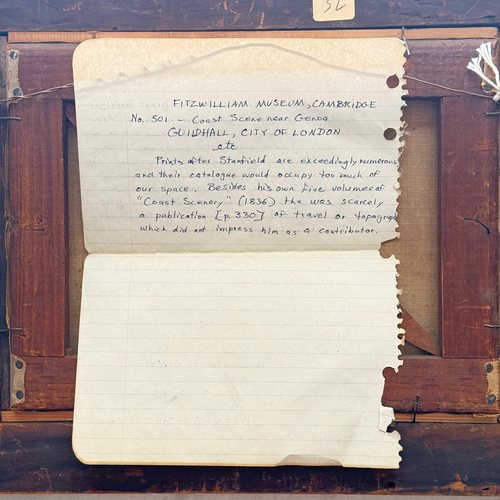 FITZWILLIAM MUSEUM, CAMBRIDGE
No. 501 - Coast Scene near Genoa
GUILDHALL, CITY OF LONDON
etc
Prints after Stanfield are exceedingly numerous
and their catalogue would occupy too much of
our space. Besides his own five volumes of
"Coast Scenery" (1836) the was scarcely
a publication [p. 330] of travel or topography
which did not impress him as a contributor.